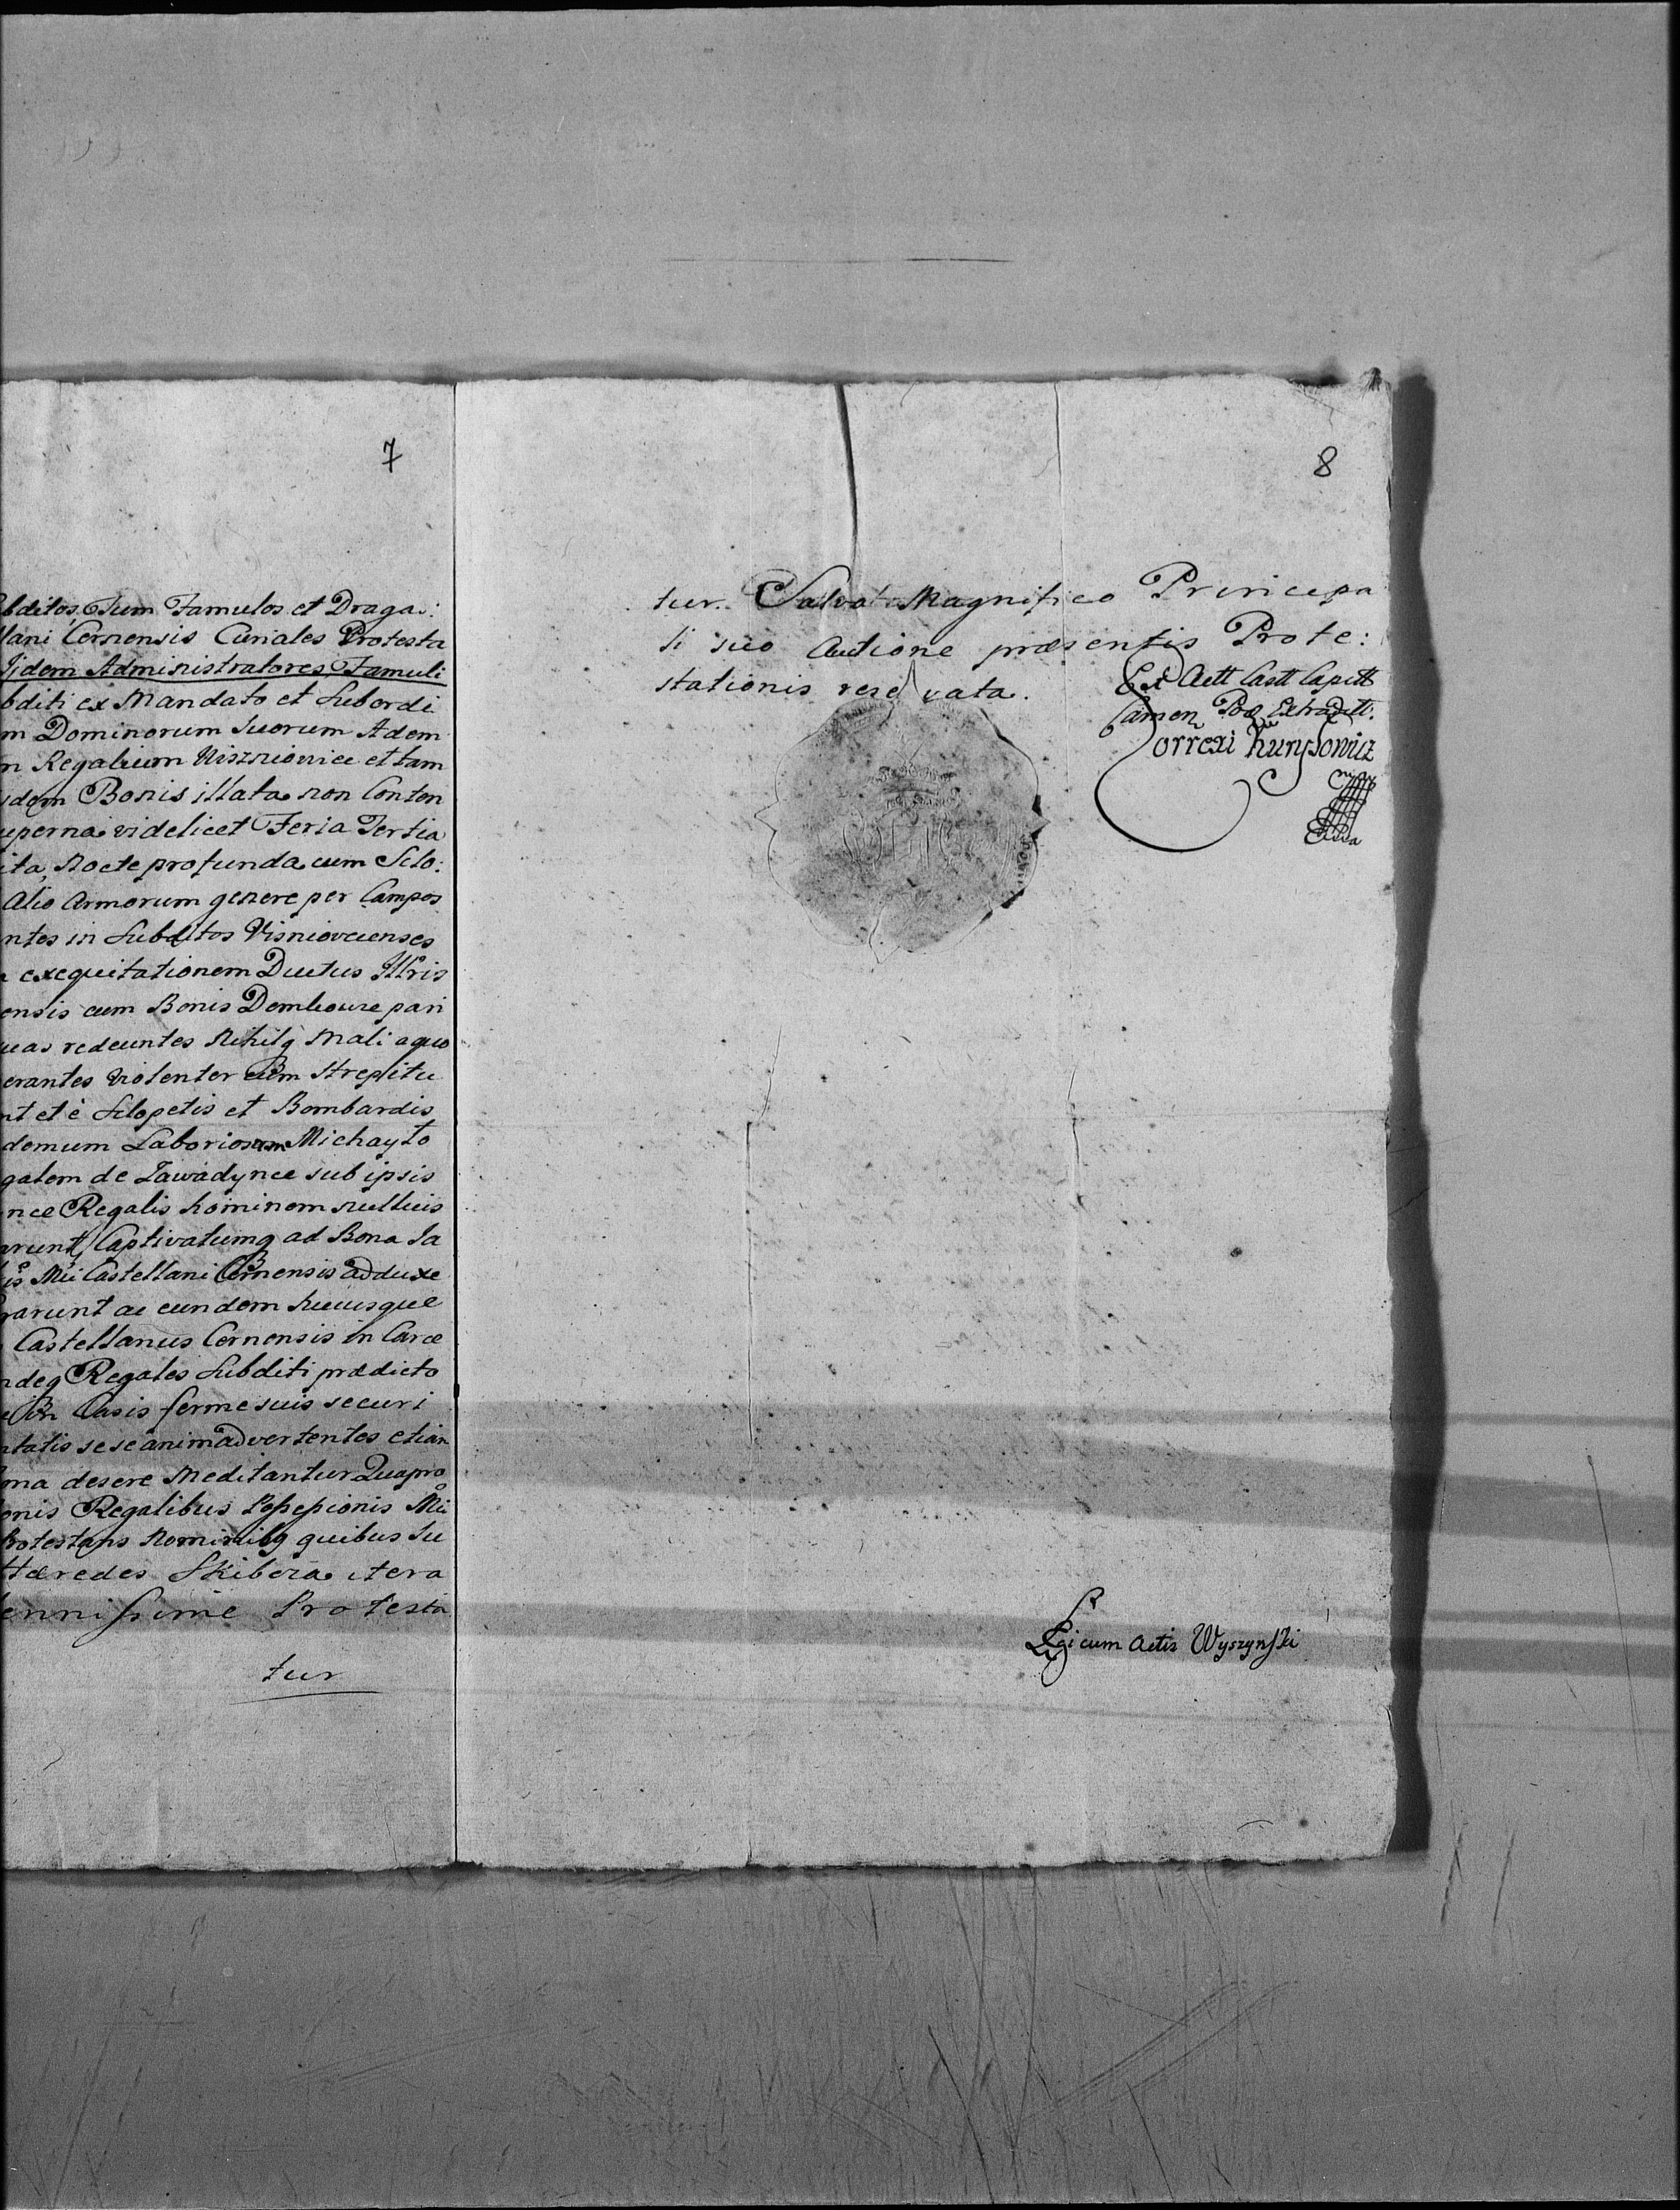 7
bditos, Tum Famulos et Draga:
lani Cernensis Curiales Protesta
Iidem Administratores, Famuli
bditi ex Mandato et Subordi
m Dominorum Suorum Adem
n Regalium Niszniovice et tam
sdem Bonis illata non Conten
uperna videlicet Feria Tertia
ita, Nocte profunda cum Sclo:
Alio Armorum genere per Campos
ntes in Subditos Visniovcenses
exequitationem Ductus Illris
ensis cum Bonis Dembowe pari
uas redeuntes Nihilq Mali a quo
erantes violenter cum Strepitu
nt et è Sclopetis et Bombardis
demum Laboriosum Michayło
galem de Zawadynce sub ipsis
nce Regalis hominem nullius
arunt, Captivatumq ad Bona Ja
is Mci Castellani Cernensis adduxe
rarunt ac eundem hucusque
Castellanus Cernensis in Carce
ndeq Regales Subditi prædicto
in Casis ferme suis securi
ntatis sese animadvertentes etiam
ona desere Meditantur Quapro
onis Regalibus Possessionis Mci
Protestans Nominibq quibus Su
Hæredes Skibeza itera
lennissime Protesta
tur
8
tur. Salva Magnifico Principa
li suo Actione præsentis Prote:
stationis reservata.
Ex Actt Castt Capitt
Camen Pod Extraditt.
Correxi
Legi cum Actis Wyszynski